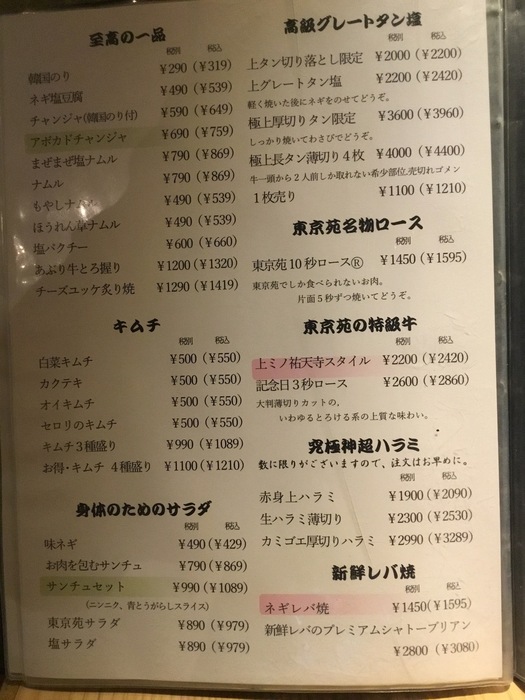 至高の一品
税別 税込
韓国のり ¥290（¥319）
ネギ塩豆腐 ¥490（¥539）
チャンジャ(韓国のり付) ¥590（¥649）
アボカドチャンジャ ¥690（¥759）
まぜまぜ塩ナムル ¥790（¥869）
ナムル ¥790（¥869）
もやしナムル ¥490（¥539）
ほうれん草ナムル ¥490（¥539）
塩パクチー ¥600（¥660）
あぶり牛とろ握り ¥1200（¥1320）
チーズユッケ炙り焼 ¥1290（¥1419）
キムチ
税別 税込
白菜キムチ ¥500（¥550）
カクテキ ¥500（¥550）
オイキムチ ¥500（¥550）
セロリのキムチ ¥500（¥550）
キムチ3種盛り ¥990（¥1089）
お得·キムチ 4種盛り ¥1100（¥1210）
身体のためのサラダ
税別 税込
味ネギ ¥490（¥429）
お肉を包むサンチュ ¥790（¥869）
サンチュセット ¥990（¥1089）
(ニンニク、青とうがらしスライス)
東京苑サラダ ¥890（¥979）
塩サラダ ¥890（¥979）
高級グレートタン塩
税別 税込
上タン切り落とし限定 ¥2000（¥2200）
上グレートタン塩 ¥2200（¥2420）
軽く焼いた後にネギをのせてどうぞ。
極上厚切りタン限定 ¥3600（¥3960）
しっかり焼いてわさびでどうぞ。
極上長タン薄切り4枚 ¥4000（¥4400）
牛一頭から2人前しか取れない希少部位,売切れゴメン
1枚売り ¥1100（¥1210）
東京苑名物ロース
税別 税込
東京苑10秒ロース® ¥1450（¥1595）
東京苑でしか食べられないお肉。
片面5秒ずつ焼いてどうぞ。
東京苑の特級牛
税別 税込
上ミノ祐天寺スタイル ¥2200（¥2420）
記念日3秒ロース ¥2600（¥2860）
大判薄切りカットの、
いわゆるとろける系の上質な味わい。
究極神超ハラミ
数に限りがございますので、注文はお早めに。
税別 税込
赤身上ハラミ ¥1900（¥2090）
生ハラミ薄切り ¥2300（¥2530）
カミゴエ厚切りハラミ ¥2990（¥3289）
新鮮レバ焼
税別 税込
ネギレバ焼 ¥1450(¥1595)
新鮮レバのプレミアムシャトーブリアン
¥2800（¥3080）